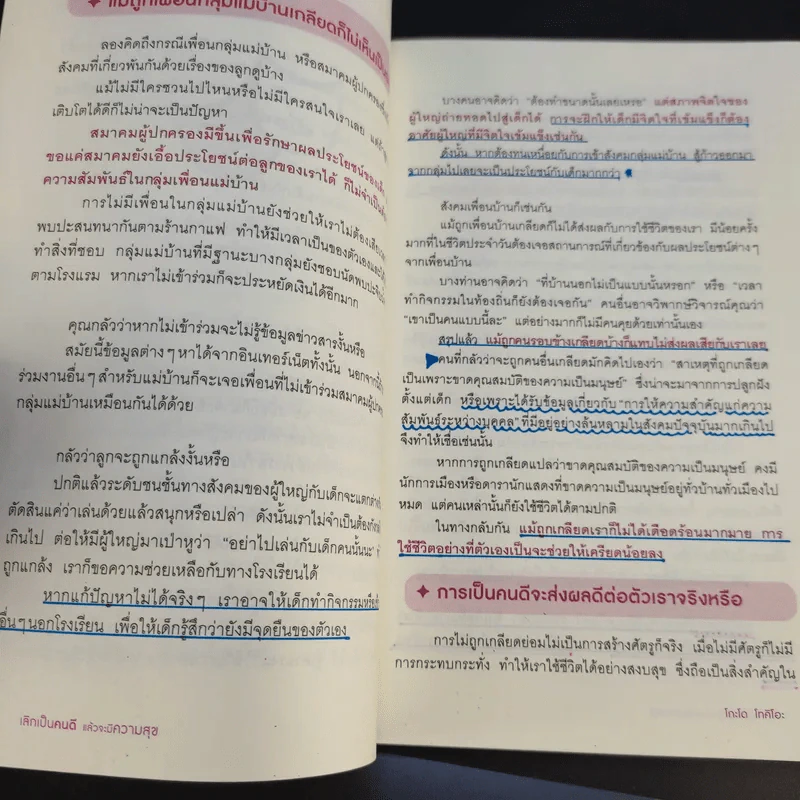 แม้ถูกเพื่อนกลุ่มแม่บ้านเกลียดก็ไม่เห็นเป็น
ลองคิดถึงกรณีเพื่อนกลุ่มแม่บ้าน หรือสมาคมผู้ปกครอง
สังคมที่เกี่ยวพันกันด้วยเรื่องของลูกดูบ้าง
แม้ไม่มีใครชวนไปไหนหรือไม่มีใครสนใจเราเลย แต่
เติบโตได้ดีก็ไม่น่าจะเป็นปัญหา
สมาคมผู้ปกครองมีขึ้นเพื่อรักษาผลประโยชน์ของเด็ก
ขอแค่สมาคมยังเอื้อประโยชน์ต่อลูกของเราได้ ก็ไม่จำเป็น
ความสัมพันธ์ในกลุ่มเพื่อนแม่บ้าน
การไม่มีเพื่อนในกลุ่มแม่บ้านยังช่วยให้เราไม่ต้อง
พบปะสนทนากันตามร้านกาแฟ ทำให้มีเวลาเป็นของตัวเอง
ทำสิ่งที่ชอบ กลุ่มแม่บ้านที่มีฐานะบางกลุ่มยังชอบนัดพบปะ
ตามโรงแรม หากเราไม่เข้าร่วมก็จะประหยัดเงินได้อีกมาก
คุณกลัวว่าหากไม่เข้าร่วมจะไม่รู้ข้อมูลข่าวสารงั้นหรือ
สมัยนี้ข้อมูลต่างๆ หาได้จากอินเทอร์เน็ตทั้งนั้น นอกจากนี้
ร่วมงานอื่นๆ สำหรับแม่บ้านก็จะเจอเพื่อนที่ไม่เข้าร่วมสมาคม
กลุ่มแม่บ้านเหมือนกันได้ด้วย
กลัวว่าลูกจะถูกแกล้งงั้นหรือ
ปกติแล้วระดับชนชั้นทางสังคมของผู้ใหญ่กับเด็กจะแตกต่าง
ตัดสินแค่ว่าเล่นด้วยแล้วสนุกหรือเปล่า ดังนั้นเราไม่จำเป็นต้อง
เกินไป ต่อให้มีผู้ใหญ่มาเป่าหูว่า “อย่าไปเล่นกับเด็กคนนั้นนะ”
ถูกแกล้ง เราก็ขอความช่วยเหลือกับทางโรงเรียนได้
หากแก้ปัญหาไม่ได้จริงๆ เราอาจให้เด็กทำกิจกรรมหรือ
อื่นๆ นอกโรงเรียน เพื่อให้เด็กรู้สึกว่ายังมีจุดยืนของตัวเอง
เลิกเป็นคนดี แล้วจะมีความสุข
บางคนอาจคิดว่า “ต้องทำขนาดนั้นเลยเหรอ” แต่สภาพจิตใจของ
ผู้ใหญ่ถ่ายทอดไปสู่เด็กได้ การจะฝึกให้เด็กมีจิตใจที่เข้มแข็งก็ต้อง
อาศัยผู้ใหญ่ที่มีจิตใจเข้มแข็งเช่นกัน
ดังนั้น หากต้องทนเหนื่อยกับการเข้าสังคมกลุ่มแม่บ้าน สู้ก้าวออกมา
จากกลุ่มไปเลยจะเป็นประโยชน์กับเด็กมากกว่า
สังคมเพื่อนบ้านก็เช่นกัน
แม้ถูกเพื่อนบ้านเกลียดก็ไม่ได้ส่งผลกับการใช้ชีวิตของเรา มีน้อยครั้ง
มากที่ในชีวิตประจำวันต้องเจอสถานการณ์ที่เกี่ยวข้องกับผลประโยชน์ต่างๆ
จากเพื่อนบ้าน
บางท่านอาจคิดว่า “ที่บ้านนอกไม่เป็นแบบนั้นหรอก” หรือ “เวลา
ทำกิจกรรมในท้องถิ่นก็ยังต้องเจอกัน” คนอื่นอาจวิพากษ์วิจารณ์คุณว่า
“เขาเป็นคนแบบนี้ละ” แต่อย่างมากก็ไม่มีคนคุยด้วยเท่านั้นเอง
สรุปแล้ว แม้ถูกคนรอบข้างเกลียดบ้างก็แทบไม่ส่งผลเสียกับเราเลย
คนที่กลัวว่าจะถูกคนอื่นเกลียดมักคิดไปเองว่า “สาเหตุที่ถูกเกลียด
เป็นเพราะขาดคุณสมบัติของความเป็นมนุษย์” ซึ่งน่าจะมาจากการปลูกฝัง
ตั้งแต่เด็ก หรือเพราะได้รับข้อมูลเกี่ยวกับ “การให้ความสำคัญแก่ความ
สัมพันธ์ระหว่างบุคคล” ที่มีอยู่อย่างล้นหลามในสังคมปัจจุบันมากเกินไป
จึงทำให้เชื่อเช่นนั้น
หากการถูกเกลียดแปลว่าขาดคุณสมบัติของความเป็นมนุษย์ คงมี
นักการเมืองหรือดารานักแสดงที่ขาดความเป็นมนุษย์อยู่ทั่วบ้านทั่วเมืองไป
หมด แต่คนเหล่านั้นก็ยังใช้ชีวิตได้ตามปกติ
ในทางกลับกัน แม้ถูกเกลียดเราก็ไม่ได้เดือดร้อนมากมาย การ
ใช้ชีวิตอย่างที่ตัวเองเป็นจะช่วยให้เครียดน้อยลง
การเป็นคนดีจะส่งผลดีต่อตัวเราจริงหรือ
การไม่ถูกเกลียดย่อมไม่เป็นการสร้างศัตรูก็จริง เมื่อไม่มีศัตรูก็ไม่มี
การกระทบกระทั่ง ทำให้เราใช้ชีวิตได้อย่างสงบสุข ซึ่งถือเป็นสิ่งสำคัญใน
โกะโด โทคิโอะ